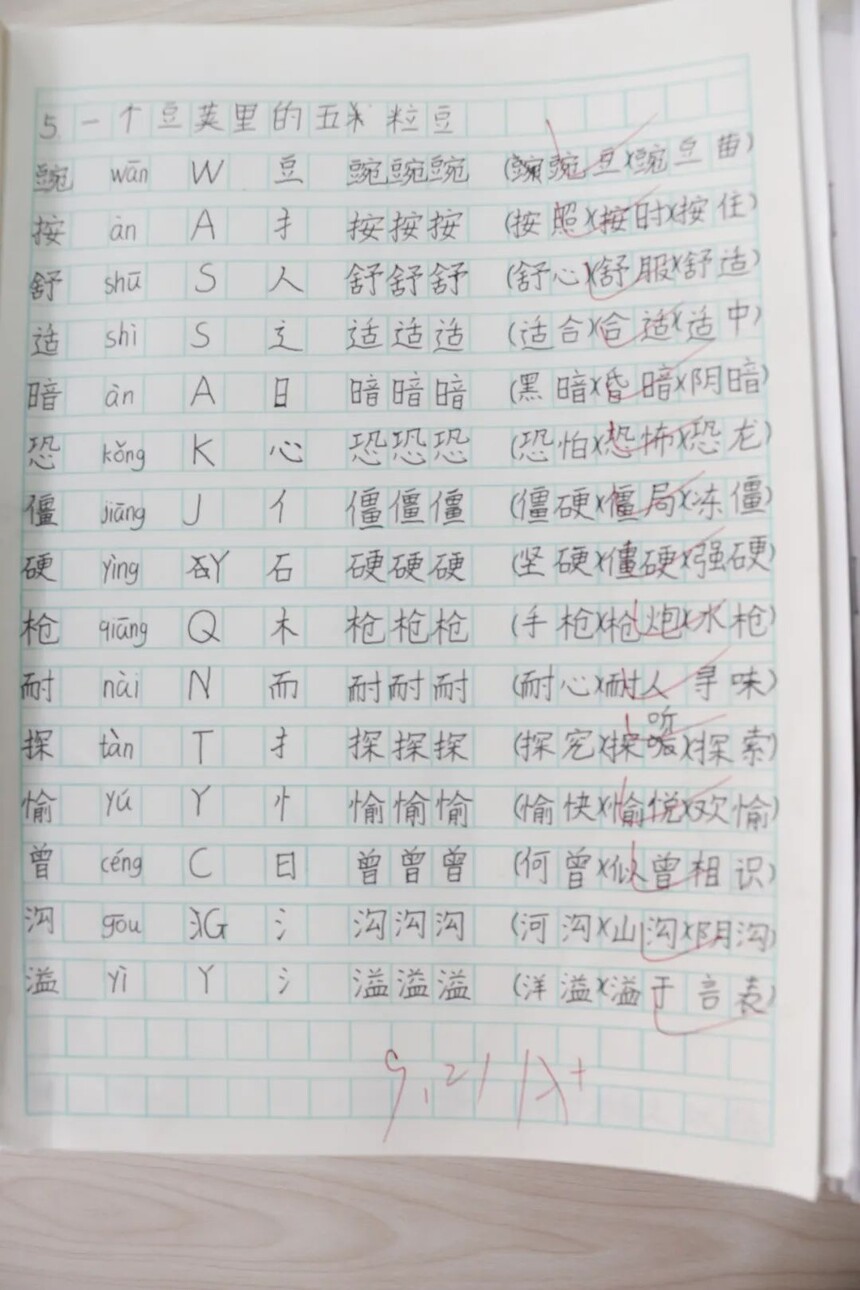 5 一个豆荚里的五粒豆
豌 wān W 豆 豌豌豌 (豌豌豆)(豌豆苗)
按 àn A 扌 按按按 (按照)(按时)(按住)
舒 shū S 人 舒舒舒 (舒心)(舒服)(舒适)
适 shì S 辶 适适适 (适合)(合适)(适中)
暗 àn A 日 暗暗暗 (黑暗)(昏暗)(阴暗)
恐 kǒng K 心 恐恐恐 (恐怕)(恐怖)(恐龙)
僵 jiāng J 亻 僵僵僵 (僵硬)(僵局)(冻僵)
硬 yìng Y 石 硬硬硬 (坚硬)(僵硬)(强硬)
枪 qiāng Q 木 枪枪枪 (手枪)(枪炮)(水枪)
耐 nài N 而 耐耐耐 (耐心)(耐人寻味)
探 tàn T 扌 探探探 (探究)(探听)(探索)
愉 yú Y 忄 愉愉愉 (愉快)(愉悦)(欢愉)
曾 céng C 日 曾曾曾 (何曾)(似曾相识)
沟 gōu G 氵 沟沟沟 (河沟)(山沟)(阴沟)
溢 yì Y 氵 溢溢溢 (洋溢)(溢于言表)
9.21 A+